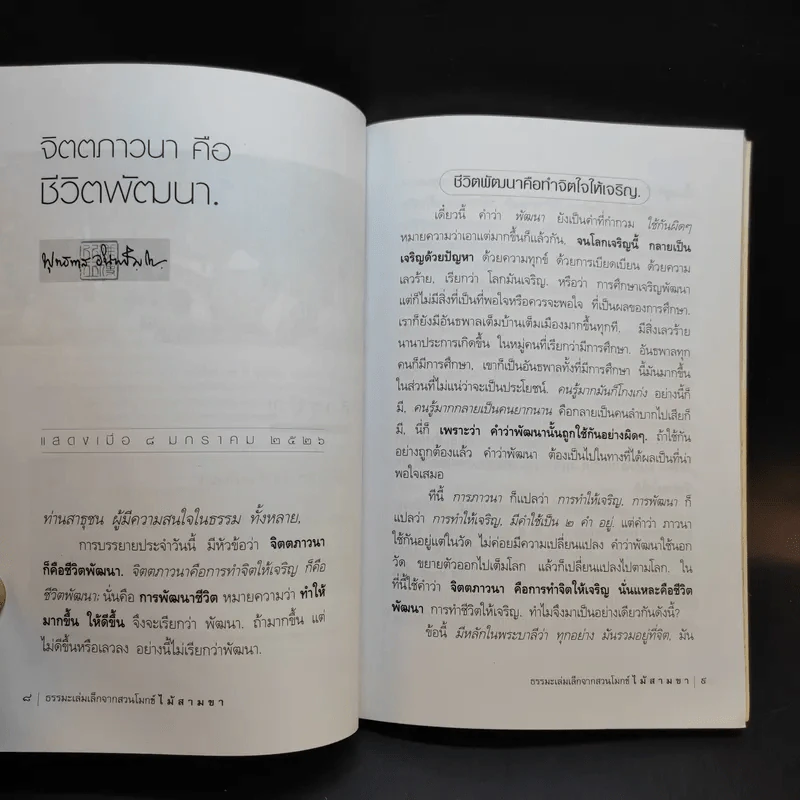 จิตตภาวนา คือ
ชีวิตพัฒนา.
พุทธทาส อินทปัญโญ.
แสดงเมื่อ ๘ มกราคม ๒๕๒๖
ท่านสาธุชน ผู้มีความสนใจในธรรม ทั้งหลาย,
การบรรยายประจำวันนี้ มีหัวข้อว่า จิตตภาวนา
ก็คือชีวิตพัฒนา. จิตตภาวนาคือการทำจิตให้เจริญ ก็คือ
ชีวิตพัฒนา: นั่นคือ การพัฒนาชีวิต หมายความว่า ทำให้
มากขึ้น ให้ดีขึ้น จึงจะเรียกว่า พัฒนา. ถ้ามากขึ้น แต่
ไม่ดีขึ้นหรือเลวลง อย่างนี้ไม่เรียกว่าพัฒนา.
๘ | ธรรมะเล่มเล็กจากสวนโมกข์ ไม้สามขา
ชีวิตพัฒนาคือทำจิตใจให้เจริญ.
เดี๋ยวนี้ คำว่า พัฒนา ยังเป็นคำที่กำกวม ใช้กันผิดๆ
หมายความว่าเอาแต่มากขึ้นก็แล้วกัน. จนโลกเจริญนี้ กลายเป็น
เจริญด้วยปัญหา ด้วยความทุกข์ ด้วยการเบียดเบียน ด้วยความ
เลวร้าย, เรียกว่า โลกมันเจริญ. หรือว่า การศึกษาเจริญพัฒนา
แต่ก็ไม่มีสิ่งที่เป็นที่พอใจหรือควรจะพอใจ ที่เป็นผลของการศึกษา.
เราก็ยังมีอันธพาลเต็มบ้านเต็มเมืองมากขึ้นทุกที, มีสิ่งเลวร้าย
นานาประการเกิดขึ้น ในหมู่คนที่เรียกว่ามีการศึกษา. อันธพาลทุก
คนก็มีการศึกษา, เขาก็เป็นอันธพาลทั้งที่มีการศึกษา นี้มันมากขึ้น
ในส่วนที่ไม่แน่ว่าจะเป็นประโยชน์. คนรู้มากมันก็โกงเก่ง อย่างนี้ก็
มี, คนรู้มากกลายเป็นคนยากนาน คือกลายเป็นคนลำบากไปเสียก็
มี. นี่ก็ เพราะว่า คำว่าพัฒนานั้นถูกใช้กันอย่างผิดๆ. ถ้าใช้กัน
อย่างถูกต้องแล้ว คำว่าพัฒนา ต้องเป็นไปในทางที่ได้ผลเป็นที่น่า
พอใจเสมอ
ทีนี้ การภาวนา ก็แปลว่า การทำให้เจริญ, การพัฒนา ก็
แปลว่า การทำให้เจริญ. มีคำใช้เป็น ๒ คำ อยู่. แต่คำว่า ภาวนา
ใช้กันอยู่แต่ในวัด ไม่ค่อยมีความเปลี่ยนแปลง คำว่าพัฒนาใช้นอก
วัด ขยายตัวออกไปเต็มโลก แล้วก็เปลี่ยนแปลงไปตามโลก. ใน
ที่นี้ใช้คำว่า จิตตภาวนา คือการทำจิตให้เจริญ นั่นแหละคือชีวิต
พัฒนา การทำชีวิตให้เจริญ. ทำไมจึงมาเป็นอย่างเดียวกันดังนี้?
ข้อนี้ มีหลักในพระบาลีว่า ทุกอย่าง มันรวมอยู่ที่จิต, มัน
ธรรมะเล่มเล็กจากสวนโมกข์ ไม้สามขา | ๙